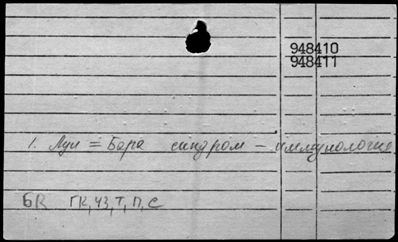 948410
948411
1. Луи = Бара синдром - иммунология
БR ГК, ЧЗ, Т, П, С